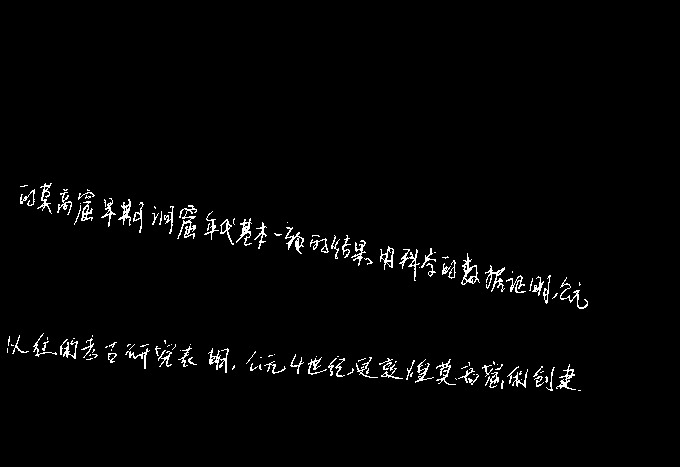 的莫高窟早期洞窟年代基本一致的结果,用科学的数据证明,公元
以往的考古研究表明,公元4世纪是敦煌莫高窟的创建